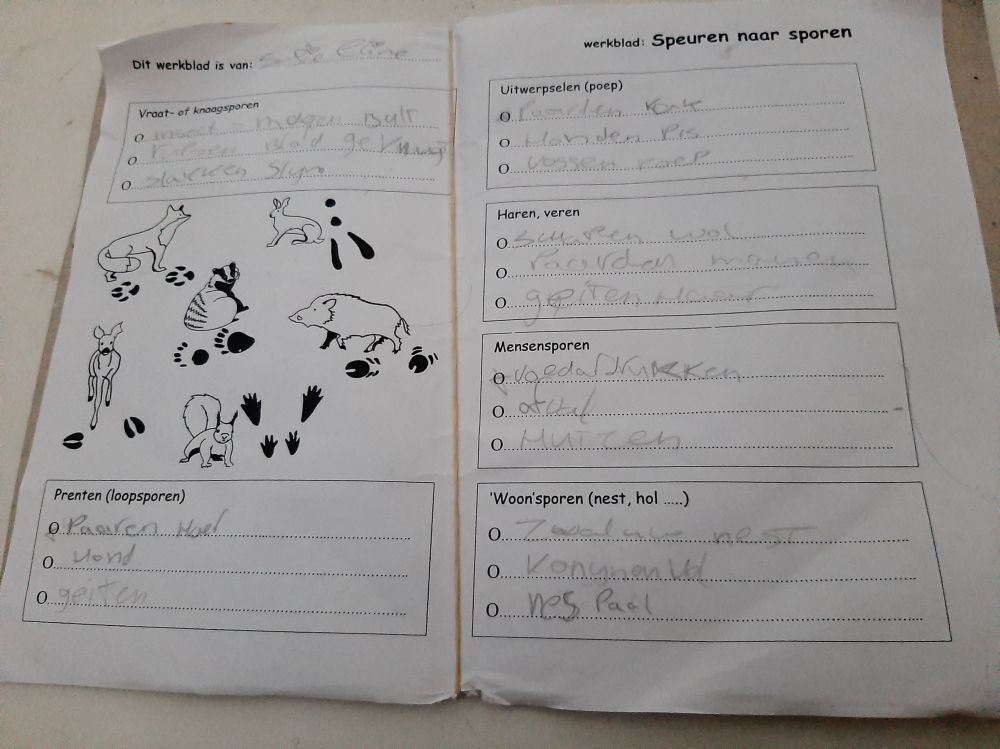 Dit werkblad is van:
Vraat- of knaagsporen
O insect - mogen Bult
O rupsen Blad
O slakken Slym
Prenten (loopsporen)
O Paaren Hoef
O Hond
O geiten
werkblad: Speuren naar sporen
Uitwerpselen (poep)
O Paarden
O Honden Pis
O Vossen Poep
Haren, veren
O wol
O Paarden manen
O geiten Haar
Mensensporen
O voedafdrukken
O
O Hutten
'Woon'sporen (nest, hol .....)
O Zwaluw nest
O Konynen Hol
O nes Paal